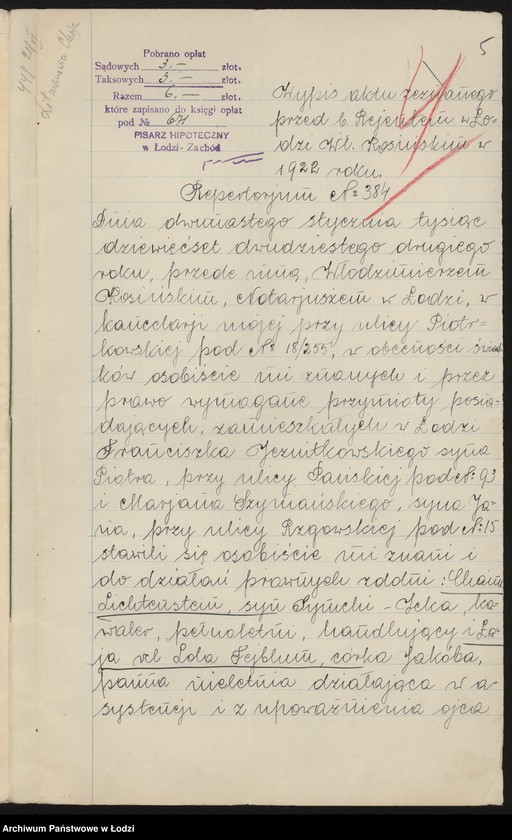 5
Pobrano opłat
Sądowych 3.- złot.
Taksowych 3.- złot.
Razem 6.- złot.
które zapisano do księgi opłat
pod № 671
PISARZ HIPOTECZNY
w Łodzi-Zachód
Wypis aktu zeznanego
przed b. Rejentem w Ło-
dzi Wł. Kosińskim w
1922 roku.
Repertorjum № 384
Dnia dwunastego stycznia tysiąc
dziewięćset dwudziestego drugiego
roku, przede mną, Włodzimierzem
Kosińskim, Notarjuszem w Łodzi, w
kancelarji mojej przy ulicy Piotr-
kowskiej pod № 18/255, w obecności świad-
ków osobiście mi znanych i przez
prawo wymagane przymioty posia-
dających, zamieszkałych w Łodzi
Franciszka Jeznitkowskiego syna
Piotra, przy ulicy Pańskiej pod № 93
i Marjana Szymańskiego, syna Ja-
na, przy ulicy Rzgowskiej pod № 15
stawili się osobiście mi znani i
do działań prawnych zdolni: Chaim
Lichtensztein, syn Symchi-Icka, ka-
waler, pełnoletni, handlujący i Ła-
ja vel Lola Fejblum, córka Jakóba,
panna nieletnia działająca w a-
systencji i z upoważnienia ojca
Archiwum Państwowe w Łodzi